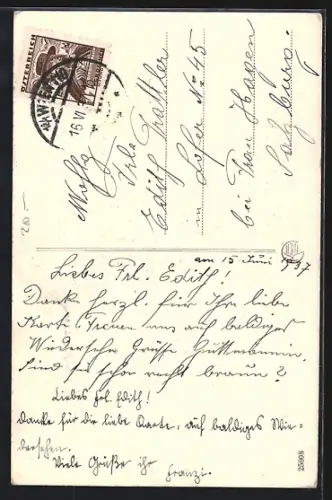 ÖSTERREICH
16.VI
Wohlg.
Frl.
Edith
in Lofer No 45
bei Frau Hagen
Salzburg.
am 15 Juni 1937
Liebes Frl. Edith!
Danke herzl. für Ihre liebe
Karte. Freuen uns auf baldiges
Wiedersehn Grüsse
Sind Sie schon recht braun?
Liebes Frl. Edith!
Danke für die liebe Karte, auf baldiges Wie-
dersehen.
Viele Grüße ihr Franzi.
25608